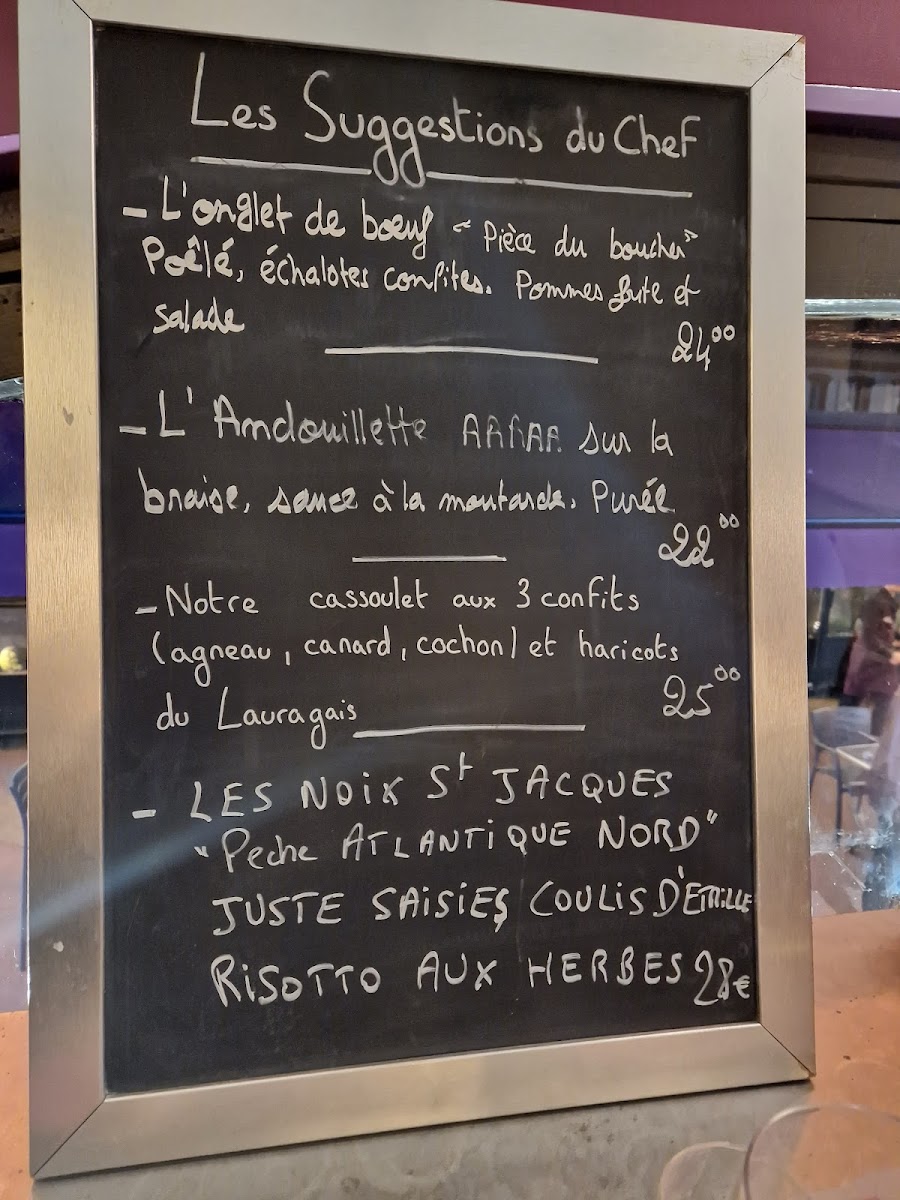 Les Suggestions du Chef
- L'onglet de bœuf "Pièce du boucher"
Poêlé, échalotes confites. Pommes frite et
salade
24⁰⁰
- L'Andouillette AAAAA sur la
braise, sauce à la moutarde. Purée
22⁰⁰
- Notre cassoulet aux 3 confits
(agneau, canard, cochon) et haricots
du Lauragais
25⁰⁰
- LES NOIX Sᵗ JACQUES
"Peche ATLANTIQUE NORD"
JUSTE SAISIES, COULIS D'ETRILLE
RISOTTO AUX HERBES 28€